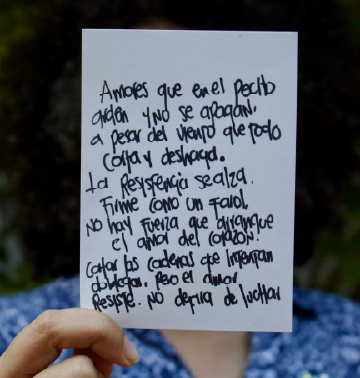 Amores que en el pecho
arden y no se apagan,
a pesar del viento que todo
corta y deshaga.
La Resistencia se alza.
Firme como un farol,
No hay fuerza que arranque
el amor del corazón.
Cortar las cadenas que intentan
doblegar. Pero el amor
Resiste. No dejra de luchar